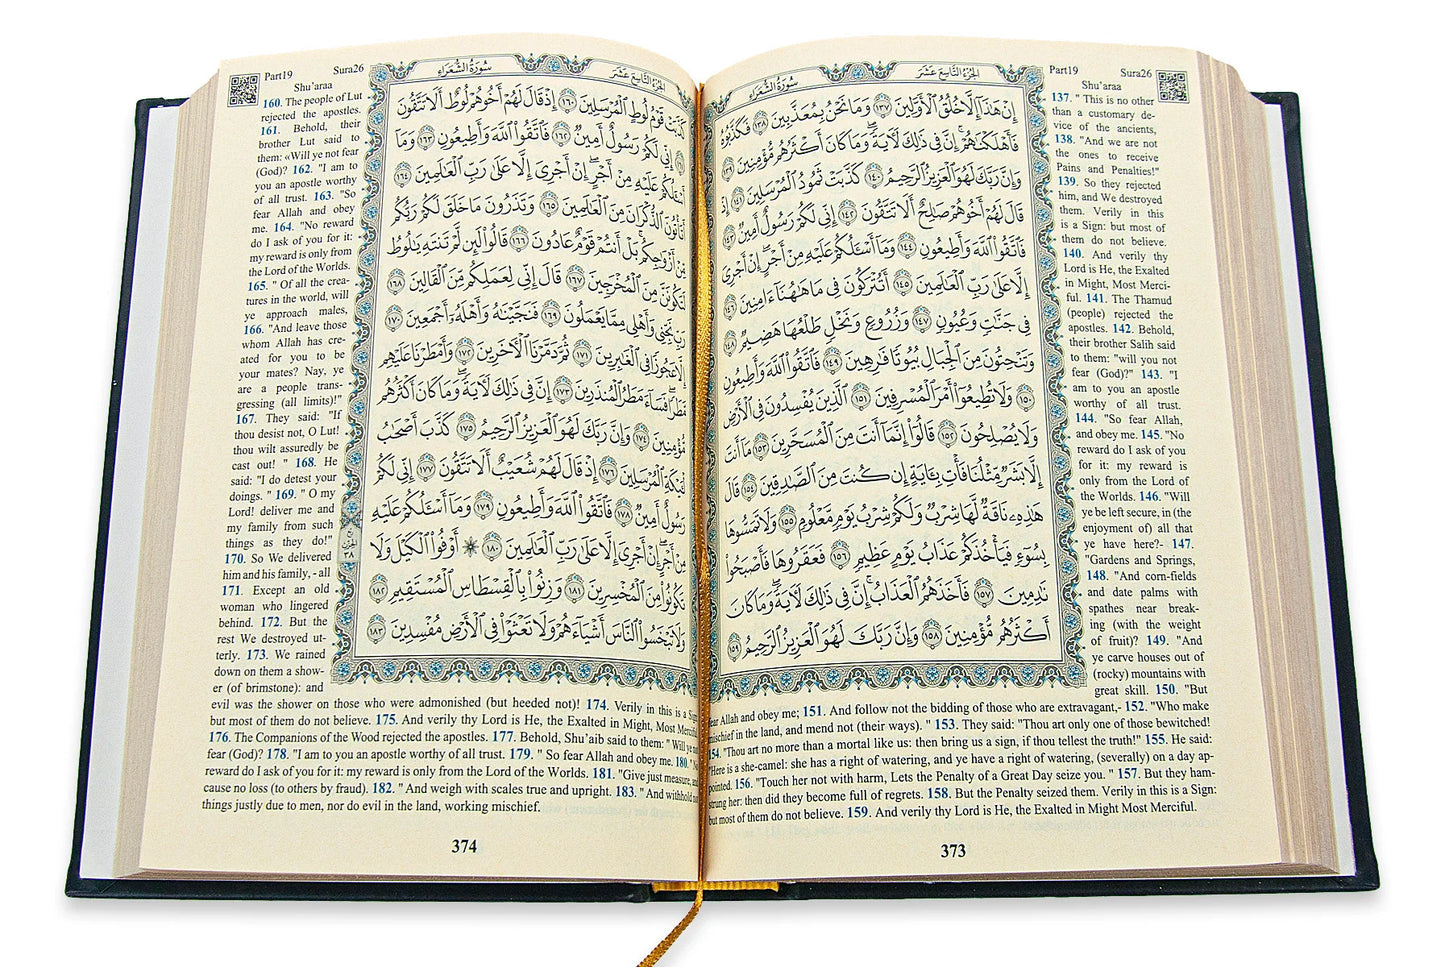 سُورَةُ الشُّعَرَاءِ
الجُزْءُ التَّاسِعَ عَشَرَ
إِنْ هَٰذَآ إِلَّا خُلُقُ ٱلْأَوَّلِينَ ١٣٧ وَمَا نَحْنُ بِمُعَذَّبِينَ ١٣٨ فَكَذَّبُوهُ
فَأَهْلَكْنَٰهُمْ إِنَّ فِى ذَٰلِكَ لَءَايَةً وَمَا كَانَ أَكْثَرُهُم مُّؤْمِنِينَ ١٣٩
وَإِنَّ رَبَّكَ لَهُوَ ٱلْعَزِيزُ ٱلرَّحِيمُ ١٤٠ كَذَّبَتْ ثَمُودُ ٱلْمُرْسَلِينَ ١٤١ إِذْ
قَالَ لَهُمْ أَخُوهُمْ صَٰلِحٌ أَلَا تَتَّقُونَ ١٤٢ إِنِّى لَكُمْ رَسُولٌ أَمِينٌ ١٤٣
فَٱتَّقُوا۟ ٱللَّهَ وَأَطِيعُونِ ١٤٤ وَمَآ أَسْـَٔلُكُمْ عَلَيْهِ مِنْ أَجْرٍ إِنْ أَجْرِىَ
إِلَّا عَلَىٰ رَبِّ ٱلْعَٰلَمِينَ ١٤٥ أَتُتْرَكُونَ فِى مَا هَٰهُنَآ ءَامِنِينَ ١٤٦
فِى جَنَّٰتٍ وَعُيُونٍ ١٤٧ وَزُرُوعٍ وَنَخْلٍ طَلْعُهَا هَضِيمٌ ١٤٨
وَتَنْحِتُونَ مِنَ ٱلْجِبَالِ بُيُوتًا فَٰرِهِينَ ١٤٩ فَٱتَّقُوا۟ ٱللَّهَ وَأَطِيعُونِ
١٥٠ وَلَا تُطِيعُوٓا۟ أَمْرَ ٱلْمُسْرِفِينَ ١٥١ ٱلَّذِينَ يُفْسِدُونَ فِى ٱلْأَرْضِ
وَلَا يُصْلِحُونَ ١٥٢ قَالُوٓا۟ إِنَّمَآ أَنتَ مِنَ ٱلْمُسَحَّرِينَ ١٥٣ مَآ أَنتَ
إِلَّا بَشَرٌ مِّثْلُنَا فَأْتِ بِـَٔايَةٍ إِن كُنتَ مِنَ ٱلصَّٰدِقِينَ ١٥٤ قَالَ
هَٰذِهِۦ نَاقَةٌ لَّهَا شِرْبٌ وَلَكُمْ شِرْبُ يَوْمٍ مَّعْلُومٍ ١٥٥ وَلَا تَمَسُّوهَا
بِسُوٓءٍ فَيَأْخُذَكُمْ عَذَابُ يَوْمٍ عَظِيمٍ ١٥٦ فَعَقَرُوهَا فَأَصْبَحُوا۟
نَٰدِمِينَ ١٥٧ فَأَخَذَهُمُ ٱلْعَذَابُ إِنَّ فِى ذَٰلِكَ لَءَايَةً وَمَا كَانَ
أَكْثَرُهُم مُّؤْمِنِينَ ١٥٨ وَإِنَّ رَبَّكَ لَهُوَ ٱلْعَزِيزُ ٱلرَّحِيمُ ١٥٩
Part19 Sura26
Shu'araa
137. " This is no other
than a customary de-
vice of the ancients,
138. "And we are not
the ones to receive
Pains and Penalties!"
139. So they rejected
him, and We destroyed
them. Verily in this
is a Sign: but most of
them do not believe.
140. And verily thy
Lord is He, the Exalted
in Might, Most Merci-
ful. 141. The Thamud
(people) rejected the
apostles. 142. Behold,
their brother Salih said
to them: "will you not
fear (God)?" 143. "I
am to you an apostle
worthy of all trust.
144. "So fear Allah,
and obey me. 145. "No
reward do I ask of you
for it: my reward is
only from the Lord of
the Worlds. 146. "Will
ye be left secure, in (the
enjoyment of) all that
ye have here?- 147.
"Gardens and Springs,
148. "And corn-fields
and date palms with
spathes near break-
ing (with the weight
of fruit)? 149. "And
ye carve houses out of
(rocky) mountains with
great skill. 150. "But
fear Allah and obey me; 151. And follow not the bidding of those who are extravagant,- 152. "Who make
mischief in the land, and mend not (their ways). " 153. They said: "Thou art only one of those bewitched!
154. "Thou art no more than a mortal like us: then bring us a sign, if thou tellest the truth!" 155. He said:
"Here is a she-camel: she has a right of watering, and ye have a right of watering, (severally) on a day ap-
pointed. 156. "Touch her not with harm, Lets the Penalty of a Great Day seize you. " 157. But they ham-
strung her: then did they become full of regrets. 158. But the Penalty seized them. Verily in this is a Sign:
but most of them do not believe. 159. And verily thy Lord is He, the Exalted in Might Most Merciful.
373
الجُزْءُ التَّاسِعَ عَشَرَ
سُورَةُ الشُّعَرَاءِ
كَذَّبَتْ قَوْمُ لُوطٍ ٱلْمُرْسَلِينَ ١٦٠ إِذْ قَالَ لَهُمْ أَخُوهُمْ لُوطٌ أَلَا تَتَّقُونَ
١٦١ إِنِّى لَكُمْ رَسُولٌ أَمِينٌ ١٦٢ فَٱتَّقُوا۟ ٱللَّهَ وَأَطِيعُونِ ١٦٣ وَمَآ
أَسْـَٔلُكُمْ عَلَيْهِ مِنْ أَجْرٍ إِنْ أَجْرِىَ إِلَّا عَلَىٰ رَبِّ ٱلْعَٰلَمِينَ ١٦٤
أَتَأْتُونَ ٱلذُّكْرَانَ مِنَ ٱلْعَٰلَمِينَ ١٦٥ وَتَذَرُونَ مَا خَلَقَ لَكُمْ رَبُّكُم
مِّنْ أَزْوَٰجِكُم بَلْ أَنتُمْ قَوْمٌ عَادُونَ ١٦٦ قَالُوا۟ لَئِن لَّمْ تَنتَهِ يَٰلُوطُ
لَتَكُونَنَّ مِنَ ٱلْمُخْرَجِينَ ١٦٧ قَالَ إِنِّى لِعَمَلِكُم مِّنَ ٱلْقَالِينَ ١٦٨
رَبِّ نَجِّنِى وَأَهْلِى مِمَّا يَعْمَلُونَ ١٦٩ فَنَجَّيْنَٰهُ وَأَهْلَهُۥٓ أَجْمَعِينَ ١٧٠
إِلَّا عَجُوزًا فِى ٱلْغَٰبِرِينَ ١٧١ ثُمَّ دَمَّرْنَا ٱلْءَاخَرِينَ ١٧٢ وَأَمْطَرْنَا عَلَيْهِم
مَّطَرًا فَسَآءَ مَطَرُ ٱلْمُنذَرِينَ ١٧٣ إِنَّ فِى ذَٰلِكَ لَءَايَةً وَمَا كَانَ أَكْثَرُهُم
مُّؤْمِنِينَ ١٧٤ وَإِنَّ رَبَّكَ لَهُوَ ٱلْعَزِيزُ ٱلرَّحِيمُ ١٧٥ كَذَّبَ أَصْحَٰبُ
لْـَٔيْكَةِ ٱلْمُرْسَلِينَ ١٧٦ إِذْ قَالَ لَهُمْ شُعَيْبٌ أَلَا تَتَّقُونَ ١٧٧ إِنِّى لَكُمْ
رَسُولٌ أَمِينٌ ١٧٨ فَٱتَّقُوا۟ ٱللَّهَ وَأَطِيعُونِ ١٧٩ وَمَآ أَسْـَٔلُكُمْ عَلَيْهِ
مِنْ أَجْرٍ إِنْ أَجْرِىَ إِلَّا عَلَىٰ رَبِّ ٱلْعَٰلَمِينَ ١٨٠ أَوْفُوا۟ ٱلْكَيْلَ وَلَا
تَكُونُوا۟ مِنَ ٱلْمُخْسِرِينَ ١٨١ وَزِنُوا۟ بِٱلْقِسْطَاسِ ٱلْمُسْتَقِيمِ ١٨٢
وَلَا تَبْخَسُوا۟ ٱلنَّاسَ أَشْيَآءَهُمْ وَلَا تَعْثَوْا۟ فِى ٱلْأَرْضِ مُفْسِدِينَ ١٨٣
٣٨
Part19 Sura26
Shu'araa
160. The people of Lut
rejected the apostles.
161. Behold, their
brother Lut said to
them: «Will ye not fear
(God)? 162. "I am to
you an apostle worthy
of all trust. 163. "So
fear Allah and obey
me. 164. "No reward
do I ask of you for it:
my reward is only from
the Lord of the Worlds.
165. " Of all the crea-
tures in the world, will
ye approach males,
166. "And leave those
whom Allah has cre-
ated for you to be
your mates? Nay, ye
are a people trans-
gressing (all limits)!"
167. They said: "If
thou desist not, O Lut!
thou wilt assuredly be
cast out! " 168. He
said: "I do detest your
doings. " 169. " O my
Lord! deliver me and
my family from such
things as they do!"
170. So We delivered
him and his family, - all
171. Except an old
woman who lingered
behind. 172. But the
rest We destroyed ut-
terly. 173. We rained
down on them a show-
er (of brimstone): and
evil was the shower on those who were admonished (but heeded not)! 174. Verily in this is a Sign
but most of them do not believe. 175. And verily thy Lord is He, the Exalted in Might, Most Merciful
176. The Companions of the Wood rejected the apostles. 177. Behold, Shu'aib said to them: " Will ye not
fear (God)? 178. "I am to you an apostle worthy of all trust. 179. " So fear Allah and obey me. 180. " No
reward do I ask of you for it: my reward is only from the Lord of the Worlds. 181. "Give just measure, and
cause no loss (to others by fraud). 182. " And weigh with scales true and upright. 183. "And withhold not
things justly due to men, nor do evil in the land, working mischief.
374